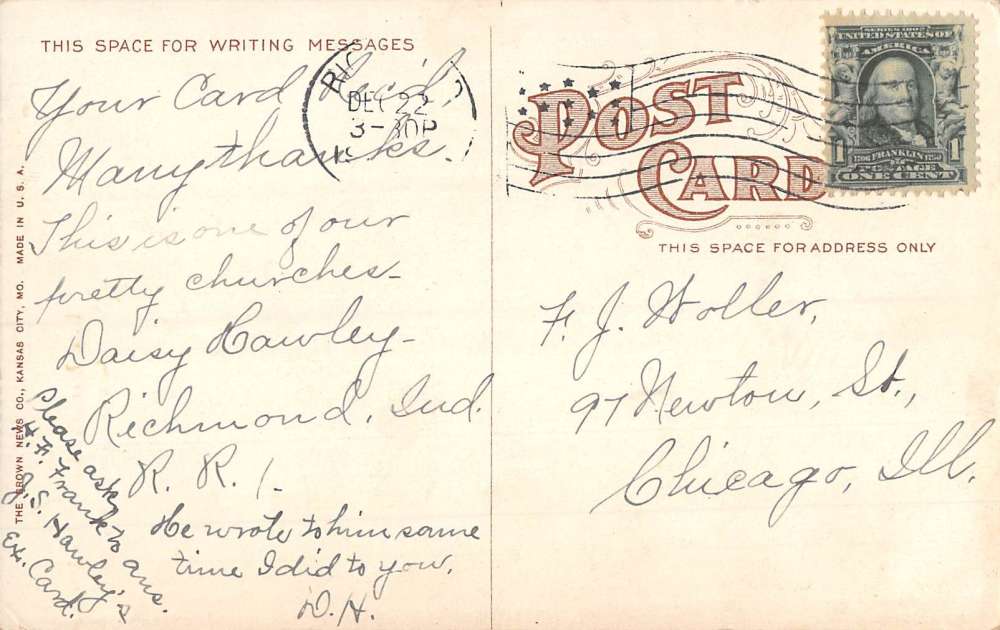 THIS SPACE FOR WRITING MESSAGES
Your Card Rec'd,
Many thanks.
This is one of our
pretty churches-
Daisy Hawley-
Richmond, Ind.
R. R. 1-
He wrote to him same
time I did to you.
D. H.
Please ask
H. F. Frank to ans.
J. S. Hawley's
Ex. Card.
THE CROWN NEWS CO., KANSAS CITY, MO. MADE IN U. S. A.
DEC 22
3-30P
POST
CARD
THIS SPACE FOR ADDRESS ONLY
SERIES 1902
UNITED STATES OF
AMERICA
1706 FRANKLIN 1790
POSTAGE
1 ONE CENT 1
F. J. Woller,
97 Newton, St.,
Chicago, Ill.